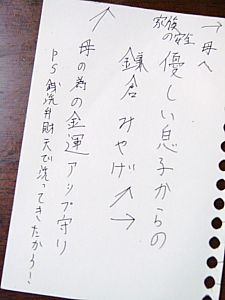 → 母へ
家族の安全
優しい息子からの
鎌倉みやげ ↑ →
↑ 母の為の金運アップ守り
PS 銭洗弁財天で洗ってきたから!